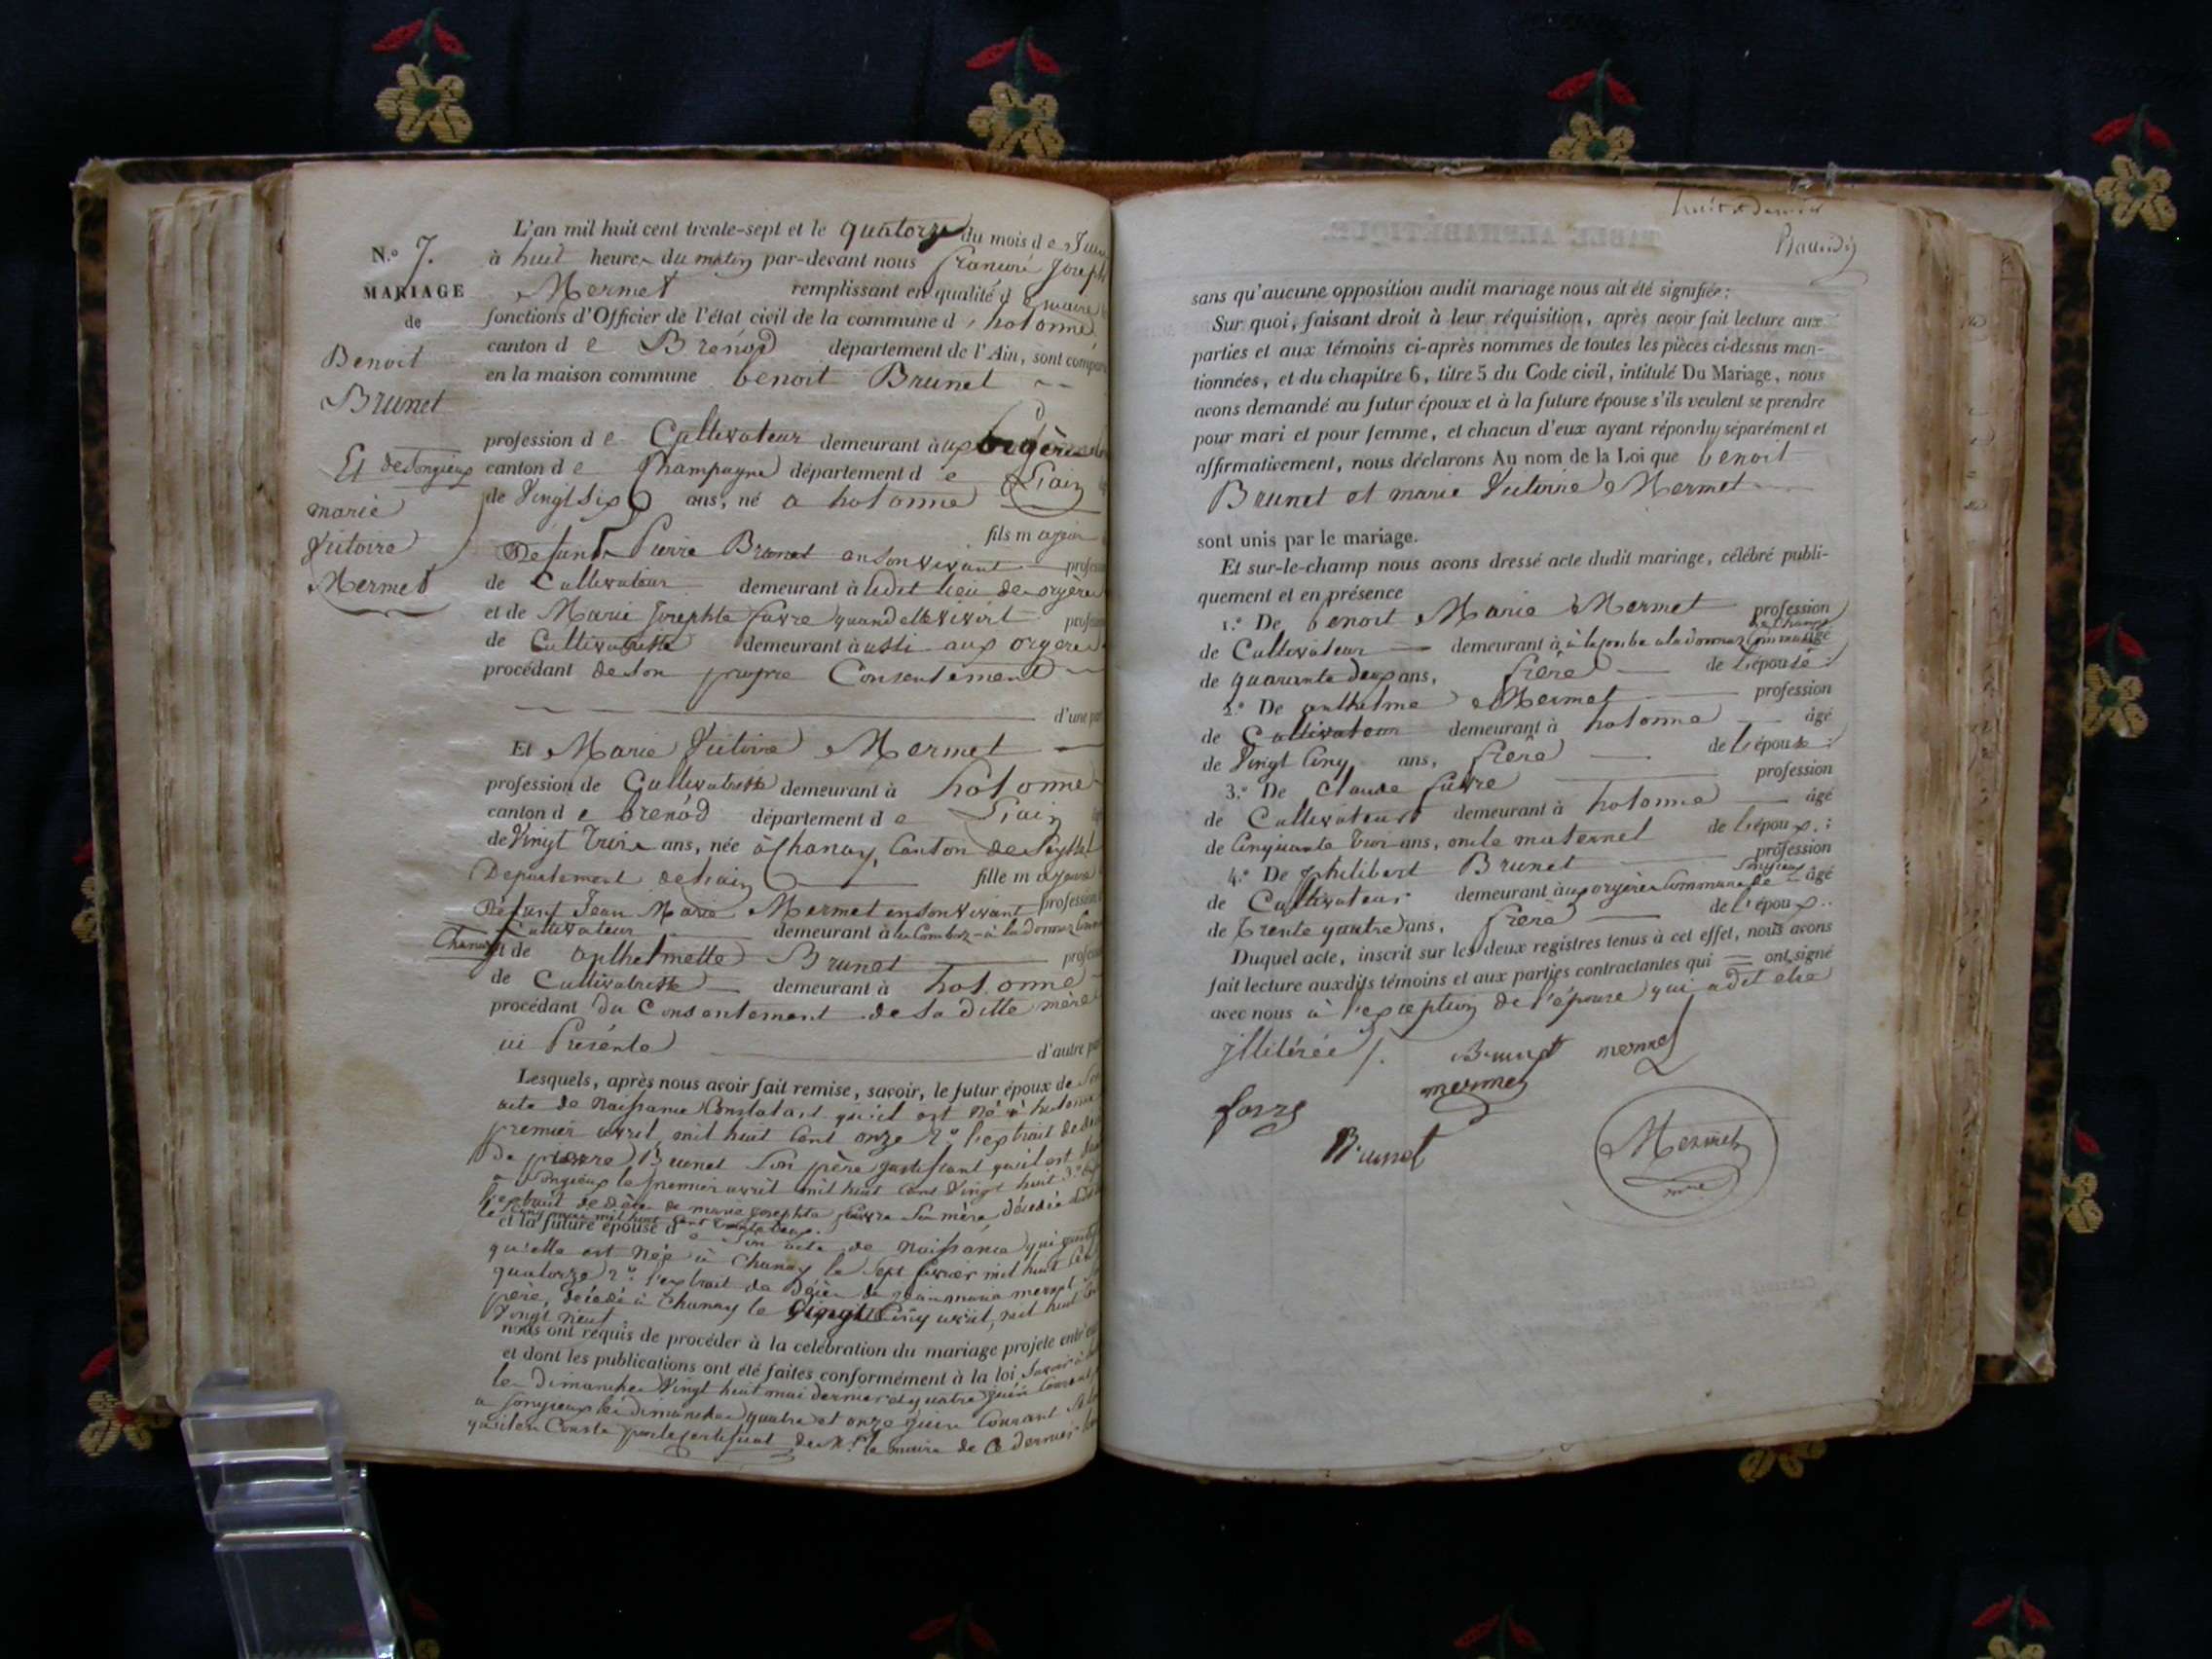 N.o 7.
MARIAGE
de
Benoit
Brunet
Et de Songieux
marie
Victoire
Mermet
L'an mil huit cent trente-sept et le quatorze du mois de Juin
à huit heures du matin par-devant nous françois Joseph
Mermet remplissant en qualité de maire
fonctions d'Officier de l'état civil de la commune d'hotonne
canton de Brénod département de l'Ain, sont comparu
en la maison commune benoit Brunet
profession de Cultivateur demeurant aux orgères
canton de Champagne département de L'ain
de Vingt Six ans, né a hotonne
fils majeur
Défunt Pierre Brunet en son vivant profession
de Cultivateur demeurant à ledit lieu des orgères
et de Marie Josephte favre quand elle vivoit profession
de Cultivatrisse demeurant aussi aux orgères
procédant de son propre Consentement
d'une part
Et Marie Victoire Mermet
profession de Cultivatrisse demeurant à hotonne
canton de brenod département de L'ain
de Vingt Trois ans, née à Chanay, Canton de Seyssel
Département de L'ain fille majeure
Défunt Jean Marie Mermet en son vivant profession
Cultivateur demeurant à la Combaz à la donnaz
Chanay et de anthelmette Brunet profession
de Cultivatrisse demeurant à hotonne
procédant du Consentement de Sa ditte mère
ici Présente d'autre part
Lesquels, après nous avoir fait remise, savoir, le futur époux de Son
acte de Naissance Constatant qu'il est Né à hotonne
premier avril mil huit Cent onze 2.o l'extrait de
De pierre Brunet Son père justifiant qu'il est
a Songieux le premier avril mil huit Cent Vingt huit 3.o
l'extrait de décès de marie josephte favre Sa mère, décédée
le mil huit cent trente deux.
et la future épouse de Son acte de Naissance qui
qu'elle est Née à Chanay le Sept février mil huit Cent
quatorze 2.o l'extrait de Décès de jean marie mermet
père, décédé à Chanay le Vingt Cinq avril, mil huit Cent
Vingt neuf
nous ont requis de procéder à la célébration du mariage projeté entr'eux
et dont les publications ont été faites conformément à la loi Savoir
le Dimanche Vingt huit mai dernier et quatre juin Courant
a Songieux les dimanches quatre et onze juin Courant
qu'il en Conste par le Certificat de Mr. le maire de Ce dernier
sans qu'aucune opposition audit mariage nous ait été signifiée;
Sur quoi, faisant droit à leur réquisition, après avoir fait lecture aux
parties et aux témoins ci-après nommés de toutes les pièces ci-dessus men-
tionnées, et du chapitre 6, titre 5 du Code civil, intitulé Du Mariage, nous
avons demandé au futur époux et à la future épouse s'ils veulent se prendre
pour mari et pour femme, et chacun d'eux ayant répondu séparément et
affirmativement, nous déclarons Au nom de la Loi que benoit
Brunet et marie Victoire Mermet
sont unis par le mariage.
Et sur-le-champ nous avons dressé acte dudit mariage, célébré publi-
quement et en présence
1.o De benoit Marie Mermet profession
de Cultivateur demeurant à la Combe a la donnaz Commune âgé
de quarante deux ans, frère de L'épouse:
2.o De anthelme Mermet profession
de Cultivateur demeurant à hotonne âgé
de Vingt Cinq ans, frère de L'épouse:
3.o De Claude favre profession
de Cultivateur demeurant à hotonne âgé
de Cinquante Trois ans, oncle maternel de L'époux.:
4.o De philibert Brunet profession
Songieux
de Cultivateur demeurant aux orgères Commune de âgé
de Trente quatre ans, frère de l'époux..
Duquel acte, inscrit sur les deux registres tenus à cet effet, nous avons
fait lecture auxdits témoins et aux parties contractantes qui ont signé
avec nous à l'exception de l'épouse qui a dit etre
jllitérée /. Brunet mermet
mermet
favre
Brunet
Mermet
mre